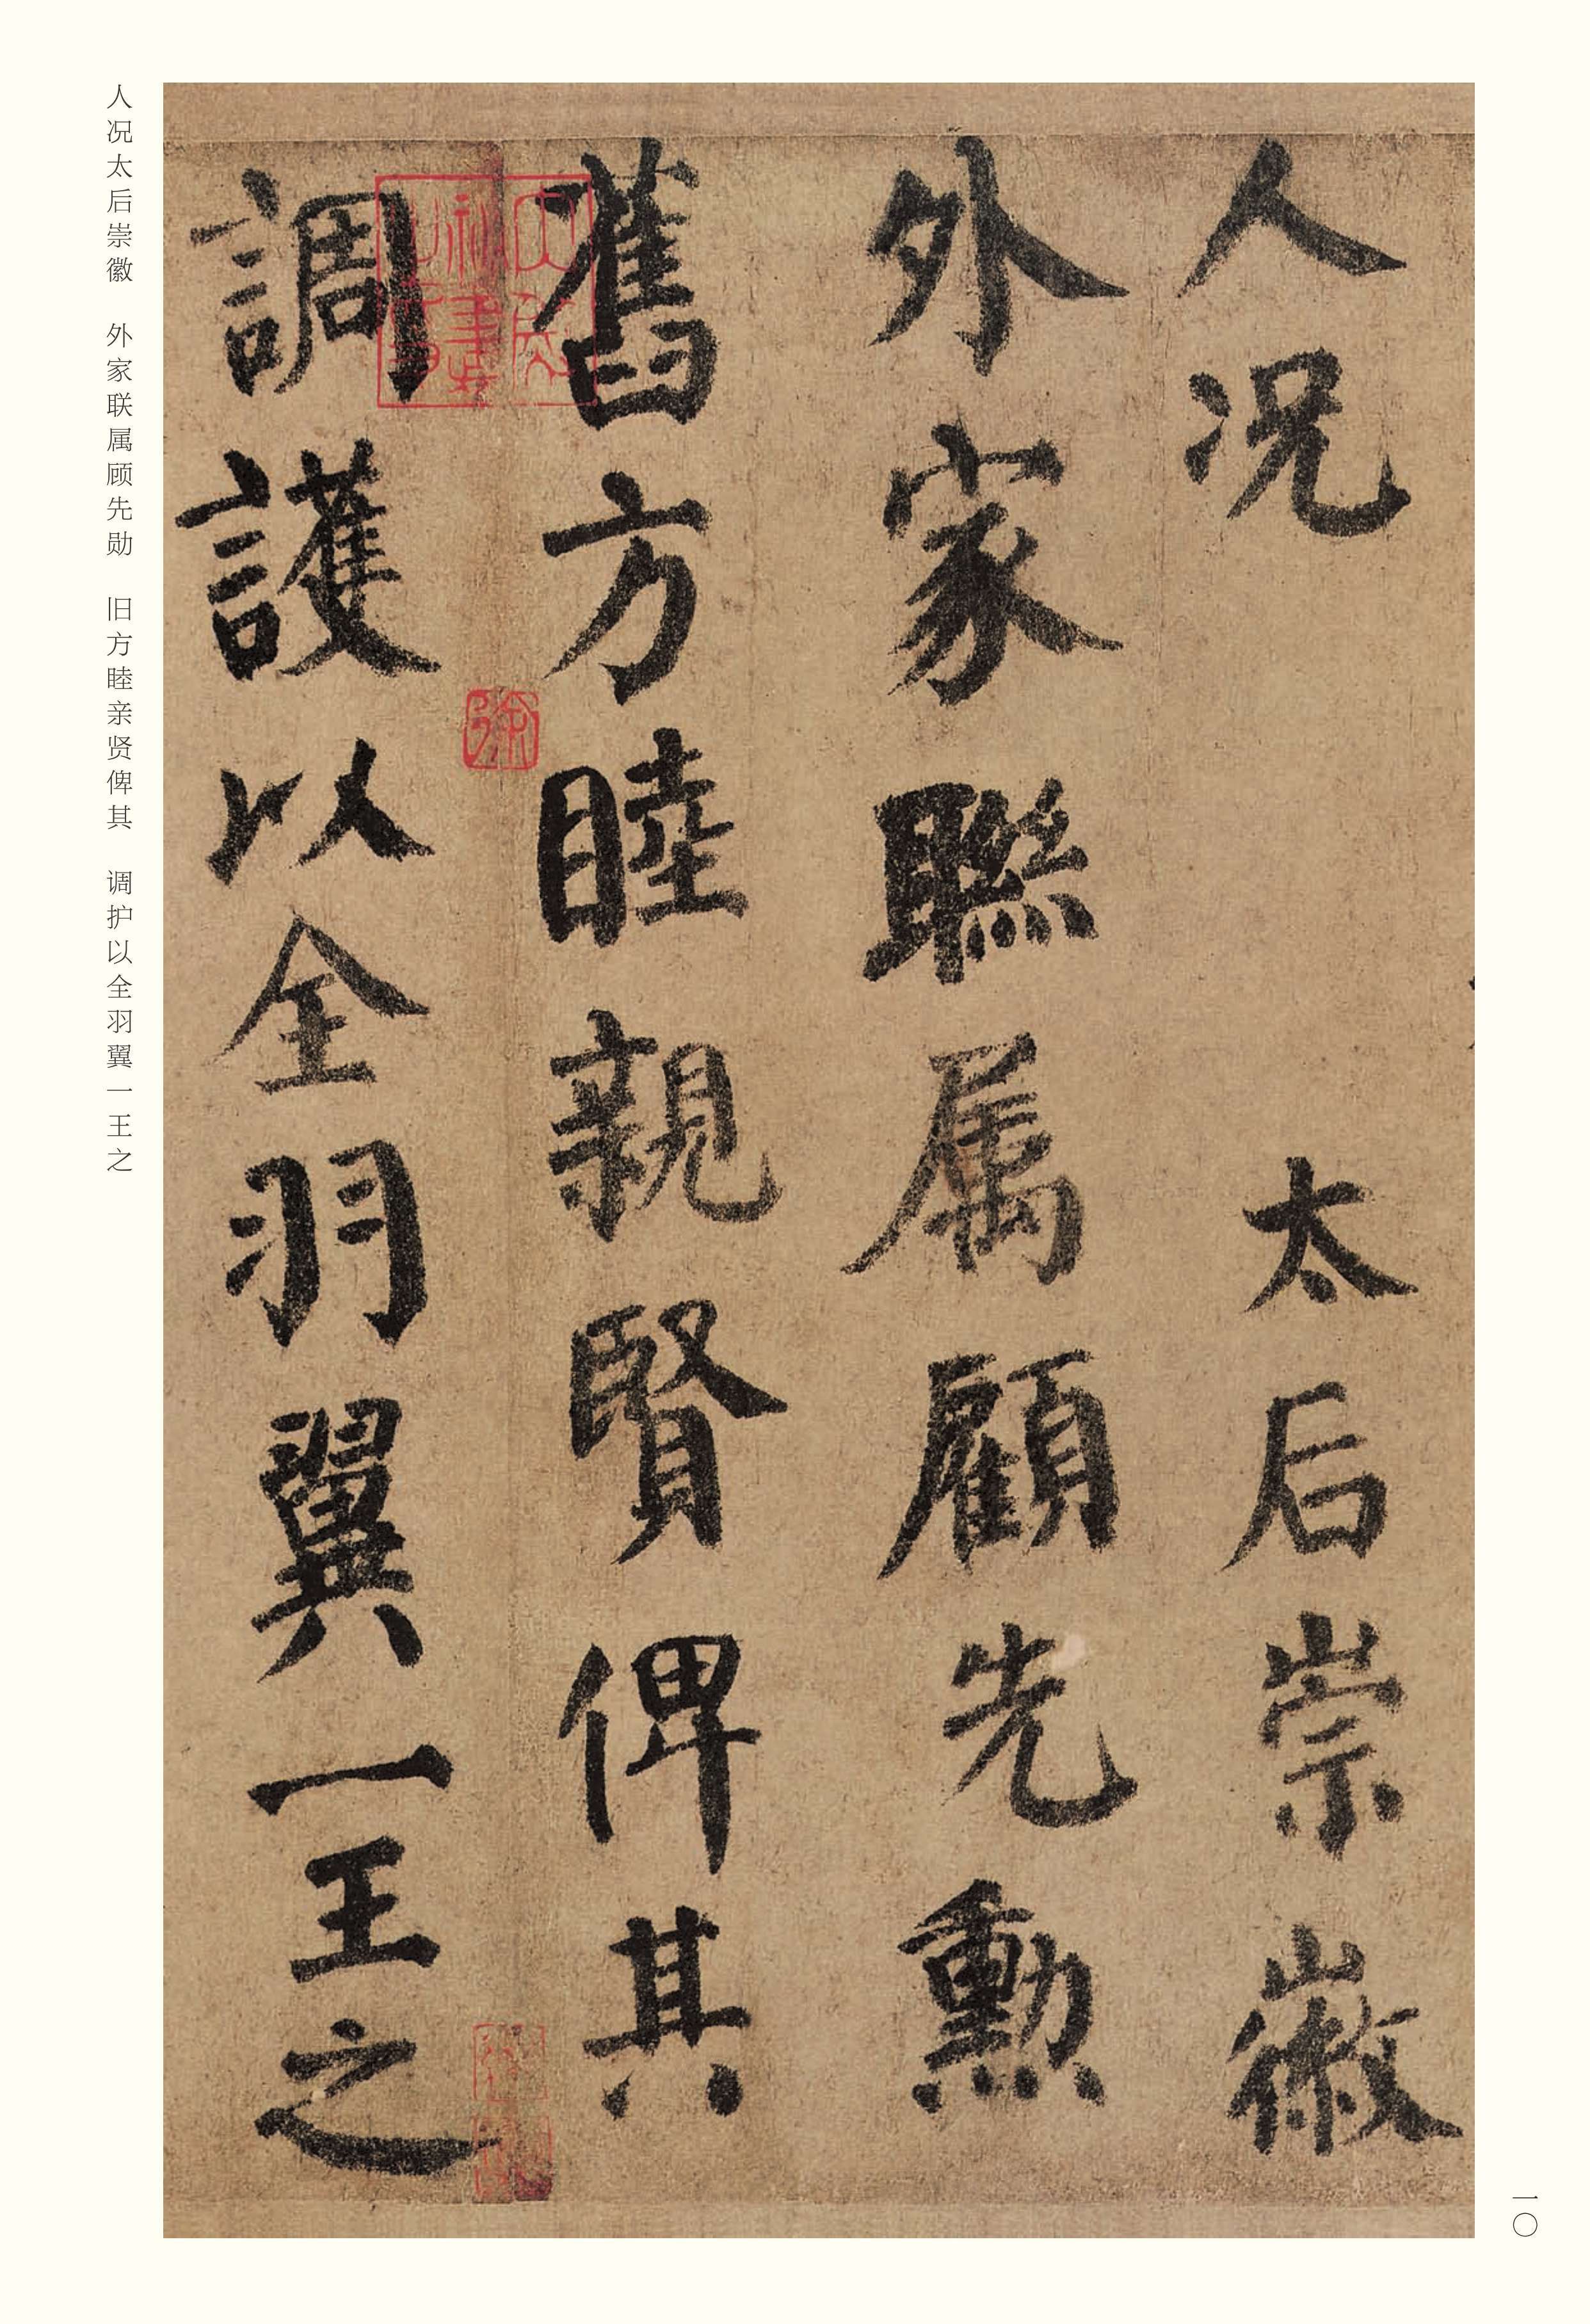 人况 太后崇徽
外家聯属顧先勲
舊方睦親賢俾其
調護以全羽翼一王之
人况太后崇徽 外家联属顾先勋 旧方睦亲贤俾其 调护以全羽翼一王之
一〇